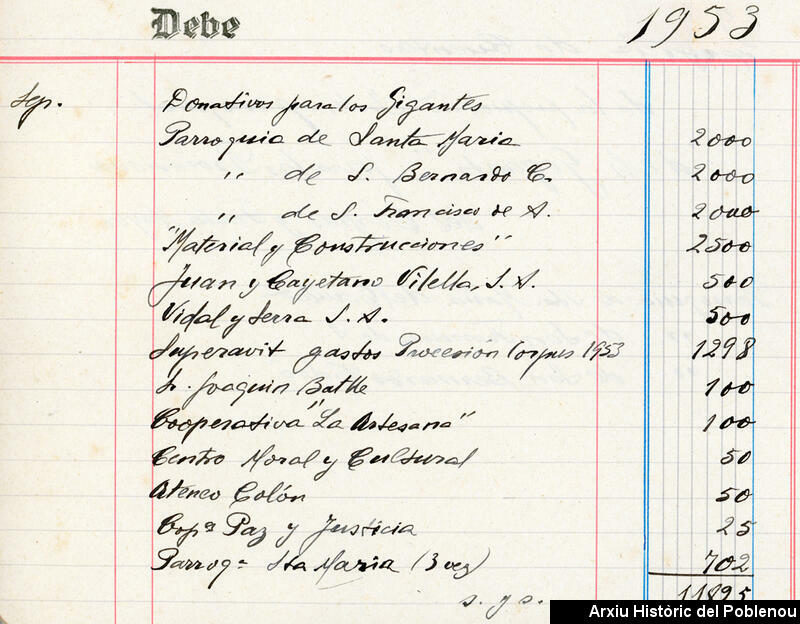 Debe 1953
Sep. Donativos para los Gigantes
Parroquia de Santa Maria 2000
" de S. Bernardo C. 2000
" de S. Francisco de A. 2000
"Material y Construcciones" 2500
Juan y Cayetano Vilella, S. A. 500
Vidal y Serra S. A. 500
Superavit gastos Procesión Corpus 1953 1298
Sr. Joaquin Batlle 100
Cooperativa "La Artesana" 100
Centro Moral y Cultural 50
Ateneo Colón 50
Copª Paz y Justicia 25
Parroqª Sta Maria (3 vez) 702
s. y s. 11825
Arxiu Històric del Poblenou